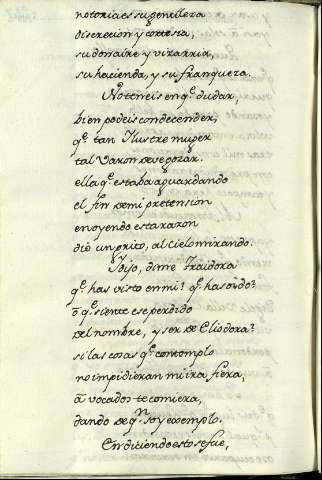 notoria es su gentileza
discrecion y cortesia,
su donaire y vizarria,
su hacienda, y su franqueza.
No teneis en q.e dudar,
bien podeis condecender,
q.e tan Ilustre muger
tal Varon deve gozar.
ella q.e estaba aguardando
el fin de mi pretension
en oyendo esta razon
dió un grito, al cielo mirando.
Y dijo, dime Traidora
q.e has visto en mi? q.e has oido?
ō q.e siente ese perdido
del nombre, y ser de Eliodora?
si las cosas q.e contemplo
no impidieran mi ira fiera,
á vocados te comiera,
dando de q.n soy exemplo.
En diciendo esto se fue,